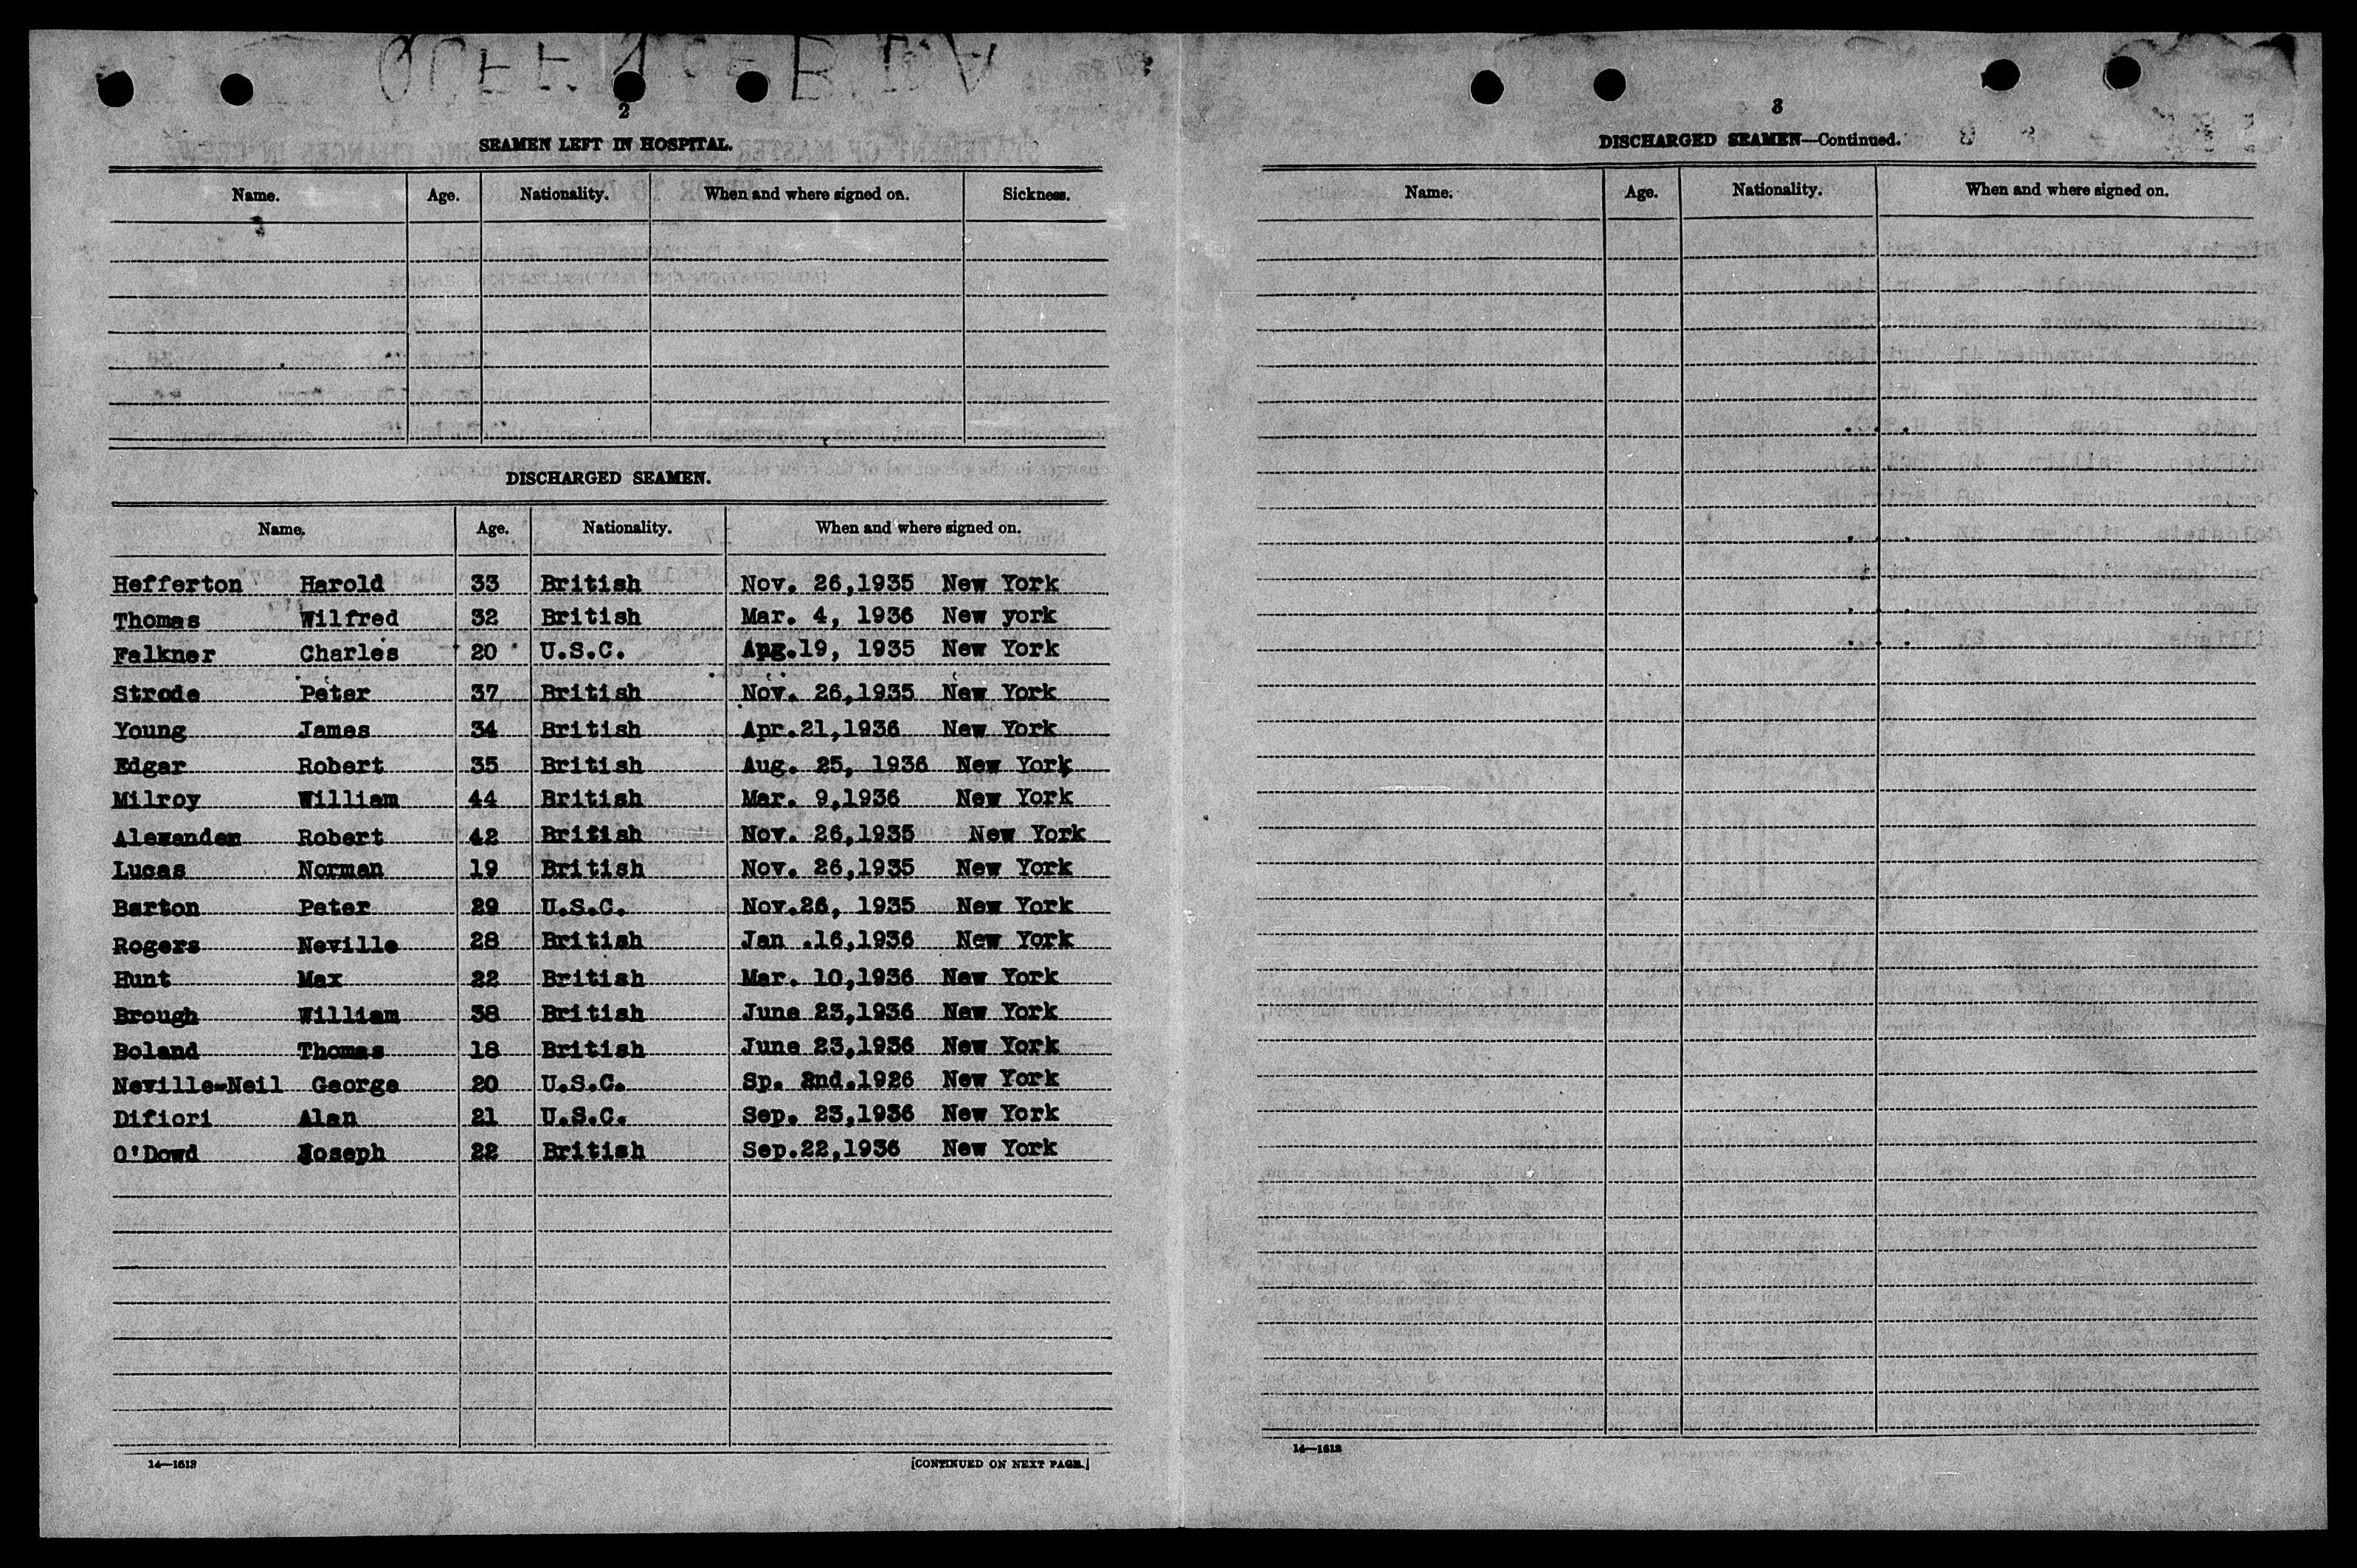 2
SEAMEN LEFT IN HOSPITAL.
Name. Age. Nationality. When and where signed on. Sickness.
DISCHARGED SEAMEN.
Name. Age. Nationality. When and where signed on.
Hefferton Harold 33 British Nov. 26,1935 New York
Thomas Wilfred 32 British Mar. 4, 1936 New york
Falkner Charles 20 U.S.C. 19, 1935 New York
Strode Peter 37 British Nov. 26,1935 New York
Young James 34 British Apr.21,1936 New York
Edgar Robert 35 British Aug. 25, 1936 New York
Milroy William 44 British Mar. 9,1936 New York
Alexander Robert 42 British Nov. 26,1935 New York
Lucas Norman 19 British Nov. 26,1935 New York
Barton Peter 29 U.S.C. Nov.26, 1935 New York
Rogers Neville 28 British Jan .16,1936 New York
Hunt Max 22 British Mar. 10,1936 New York
Brough William 38 British June 23,1936 New York
Boland Thomas 18 British June 23,1936 New York
Neville-Neil George 20 U.S.C. Sp. 2nd.1926 New York
Difiori Alan 21 U.S.C. Sep. 23,1936 New York
O'Dowd Joseph 22 British Sep.22,1936 New York
14—1613
[CONTINUED ON NEXT PAGE.]
3
DISCHARGED SEAMEN—Continued.
Name. Age. Nationality. When and where signed on.
14—1613